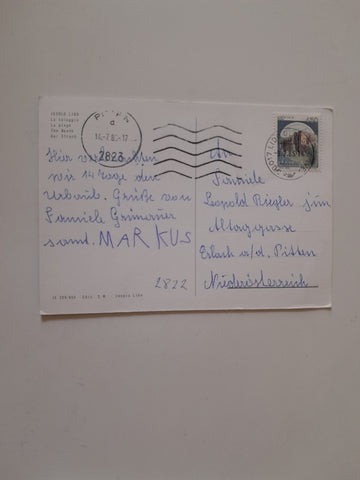 JESOLO LIDO
La spiaggia
La plage
The Beach
Der Strand
14.-7.8
-17
2823
Hier verbringen
wir 14 Tage den
Urlaub. Grüße von
Familie
samt. MARKUS
2822
An
Familie
Leopold Riegler jun.
Altaggasse
Erlach a/d. Pitten
Niederösterreich
30017 LIDO
Jesolo Lido